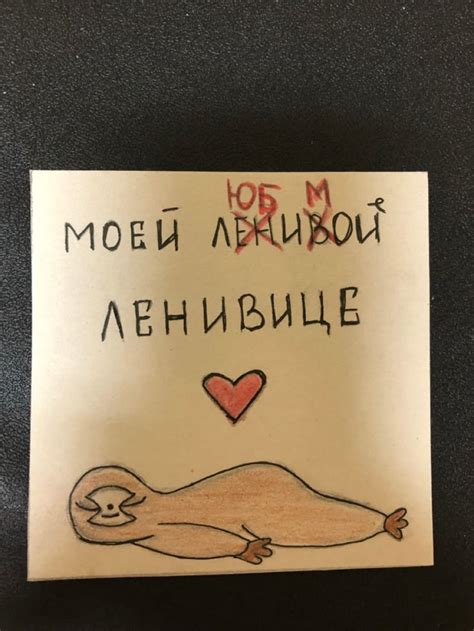 ЮБ М
МОЕЙ ЛЕНИВОЙ
ЛЕНИВИЦЕ